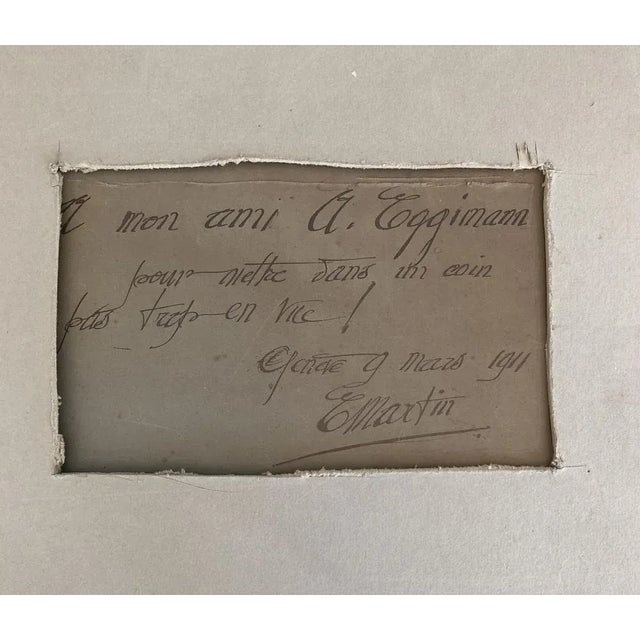 A mon ami A. Eggimann
pour mettre dans un coin
pas trop en vue!
Genève 9 mars 1911
E Martin